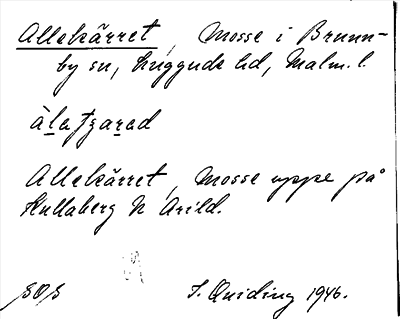 Allekärret, Mosse i Brunn-
by sn, Luggude hd, Malm. l.
Allekärret, Mosse uppe på
Kullaberg N Arild.
SOS I. Quiding 1946.